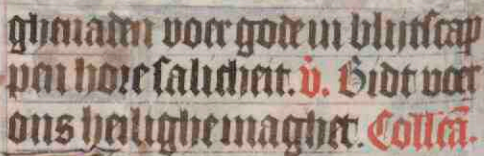 ghenaden voer gode in blijtscap
pen hore salicheit. v̓. Bidt voer
ons heilighe maghet. Collcā.